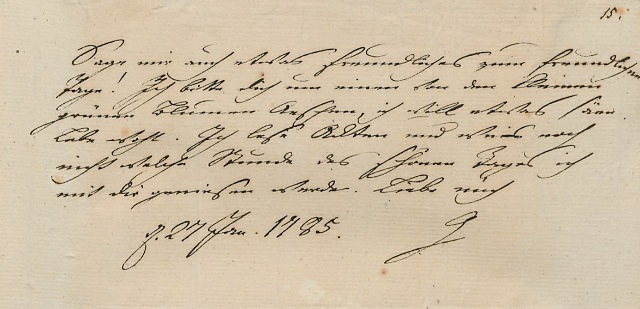 15.
Sage mir auch etwas freundliches zum freundlichen
Tage! Ich bitte dich um einen von den kleinen
grünen Blumen Äschgen, ich will etwas säen.
Lebe wohl. Ich lese Ackten und weis noch
nicht welche Stunde des schönen Tages ich
mit dir geniesen werde. Liebe mich
d. 27 Jan. 1785. G